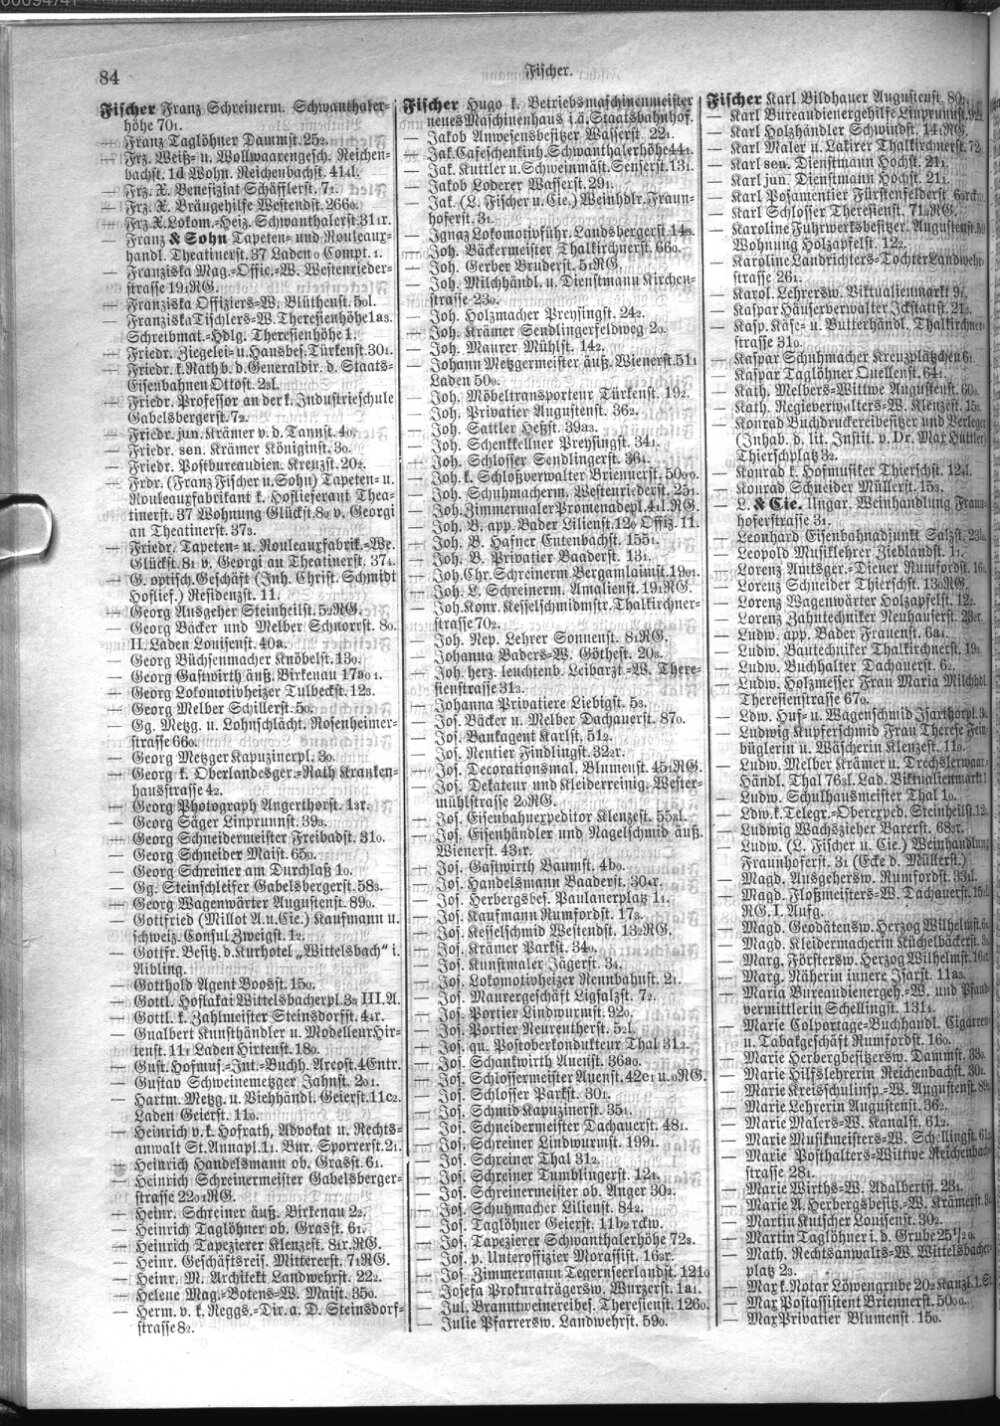 84
Fischer.
Fischer Franz Schreinerm. Schwanthaler-
höhe 70₁.
— Franz Taglöhner Daumst. 25₂.
— Frz. Weiß- u. Wollwaarengesch. Reichen-
bachst. 1d Wohn. Reichenbachst. 41₄l.
— Frz. X. Benefiziat Schäfflerst. 7₁.
— Frz. X. Bräugehilfe Westendst. 266₀.
— Frz. X. Lokom.-Heiz. Schwanthalerst. 31₁r.
— Franz & Sohn Tapeten- und Rouleaux-
handl. Theatinerst. 37 Laden ₀ Compt. ₁.
— Franziska Mag.-Offic.-W. Westenrieder-
strasse 19₁RG.
— Franziska Offiziers-W. Blüthenst. 5₀l.
— Franziska Tischlers-W. Theresienhöhe 1a₃.
Schreibmat.-Hdlg. Theresienhöhe 1.
— Friedr. Ziegelei- u. Hausbes. Türkenst. 30₁.
— Friedr. k. Rath b. d. Generaldir. d. Staats-
Eisenbahnen Ottost. 2₃l.
— Friedr. Professor an der k. Industrieschule
Gabelsbergerst. 7₂.
— Friedr. jun. Krämer v. d. Tannst. 4₀.
— Friedr. sen. Krämer Königinst. 3₀.
— Friedr. Postbureaudien. Kreuzst. 20₂.
— Frdr. (Franz Fischer u. Sohn) Tapeten- u.
Rouleauxfabrikant k. Hoflieferant Thea-
tinerst. 37 Wohnung Glückst. 8₀ v. Georgi
an Theatinerst. 37₃.
— Friedr. Tapeten- u. Rouleauxfabrik.-We.
Glückst. 8₁ v. Georgi an Theatinerst. 37₄.
— G. optisch. Geschäft (Inh. Christ. Schmidt
Hoflief.) Residenzst. 11.
— Georg Ausgeher Steinheilst. 5₂RG.
— Georg Bäcker und Melber Schnorrst. 8₀.
II. Laden Louisenst. 40a.
— Georg Büchsenmacher Knöbelst. 13₀.
— Georg Gastwirth äuß. Birkenau 17a₀ ₁.
— Georg Lokomotivheizer Tulbeckst. 12₃.
— Georg Melber Schillerst. 5₀.
— Gg. Metzg. u. Lohnschlächt. Rosenheimer-
strasse 66₀.
— Georg Metzger Kapuzinerpl. 3₀.
— Georg k. Oberlandesger.-Rath Kranken-
hausstrasse 4₂.
— Georg Photograph Angerthorst. 1₂r.
— Georg Säger Linprunnst. 39₃.
— Georg Schneidermeister Freibadst. 31₀.
— Georg Schneider Maist. 65₀.
— Georg Schreiner am Durchlaß 1₀.
— Gg. Steinschleifer Gabelsbergerst. 58₃.
— Georg Wagenwärter Augustenst. 89₀.
— Gottfried (Millot A. u. Cie.) Kaufmann u.
schweiz. Consul Zweigst. 1₂.
— Gottfr. Besitz. d. Kurhotel „Wittelsbach" i.
Aibling.
— Gotthold Agent Boosst. 15₀.
— Gottl. Hoflakai Wittelsbacherpl. 3₃ III. A.
— Gottl. k. Zahlmeister Steinsdorfst. 4₄r.
— Gualbert Kunsthändler u. Modelleur Hir-
tenst. 11₁ Laden Hirtenst. 18₀.
— Gust. Hofmus.-Int.-Buchh. Arcost. 4Entr.
— Gustav Schweinemetzger Jahnst. 2₀₁.
— Hartm. Metzg. u. Viehhändl. Geierst. 11c₂.
Laden Geierst. 11₀.
— Heinrich v. k. Hofrath, Advokat u. Rechts-
anwalt St. Annapl. 1₁. Bur. Sporrerst. 2₁.
— Heinrich Handelsmann ob. Grasst. 6₁.
— Heinrich Schreinermeister Gabelsberger-
strasse 22₀₁RG.
— Heinr. Schreiner äuß. Birkenau 2₂.
— Heinrich Taglöhner ob. Grasst. 6₁.
— Heinrich Tapezierer Klenzest. 8₁r.RG.
— Heinr. Geschäftsreis. Mittererst. 7₁RG.
— Heinr. M. Architekt Landwehrst. 22₂.
— Helene Mag.-Botens-W. Maist. 35₀.
— Herm. v. k. Reggs.-Dir. a. D. Steinsdorf-
strasse 8₂.
Fischer Hugo k. Betriebsmaschinenmeister
neues Maschinenhaus i. ä. Staatsbahnhof.
— Jakob Anwesensbesitzer Wasserst. 22₁.
— Jak. Cafeschenkinh. Schwanthalerhöhe 44₁.
— Jak. Kuttler u. Schweinmäst. Senserst. 13₁.
— Jakob Loderer Wasserst. 29₁.
— Jak. (L. Fischer u. Cie.) Weinhdlr. Fraun-
hoferst. 3₁.
— Ignaz Lokomotivführ. Landsbergerst. 14₃.
— Joh. Bäckermeister Thalkirchnerst. 66₀.
— Joh. Gerber Bruderst. 5₁RG.
— Joh. Milchhändl. u. Dienstmann Kirchen-
strasse 23₀.
— Joh. Holzmacher Preysingst. 24₂.
— Joh. Krämer Sendlingerfeldweg 2₀.
— Joh. Maurer Mühlst. 14₂.
— Johann Metzgermeister äuß. Wienerst. 51₁
Laden 50₀.
— Joh. Möbeltransporteur Türkenst. 19₂.
— Joh. Privatier Augustenst. 36₂.
— Joh. Sattler Heßst. 39a₃.
— Joh. Schenkkellner Preysingst. 34₁.
— Joh. Schlosser Sendlingerst. 36₄.
— Joh. k. Schloßverwalter Briennerst. 50₀₀.
— Joh. Schuhmacherm. Westenriederst. 25₁.
— Joh. Zimmermaler Promenadepl. 4₄l.RG.
— Joh. B. app. Bader Lilienst. 12₀ Offiz. 11.
— Joh. B. Hafner Entenbachst. 155₁.
— Joh. B. Privatier Baaderst. 13₁.
— Joh. Chr. Schreinerm. Bergamlaimst. 19₀₁.
— Joh. L. Schreinerm. Amalienst. 19₁RG.
— Joh. Konr. Kesselschmidmstr. Thalkirchner-
strasse 70₂.
— Joh. Nep. Lehrer Sonnenst. 8₁RG.
— Johanna Baders-W. Göthest. 20₃.
— Joh. herz. leuchtenb. Leibarzt.-W. There-
sienstrasse 31₃.
— Johanna Privatiere Liebigst. 5₃.
— Jos. Bäcker u. Melber Dachauerst. 87₀.
— Jos. Bankagent Karlst. 51₂.
— Jos. Rentier Findlingst. 32₂r.
— Jos. Decorationsmal. Blumenst. 45₁RG.
— Jos. Dekateur und Kleiderreinig. Wester-
mühlstrasse 2₀RG.
— Jos. Eisenbahnexpeditor Klenzest. 55₂l.
— Jos. Eisenhändler und Nagelschmid äuß.
Wienerst. 43₁r.
— Jos. Gastwirth Baumst. 4b₀.
— Jos. Handelsmann Baaderst. 30₄r.
— Jos. Herbergsbes. Paulanerplatz 1₁.
— Jos. Kaufmann Rumfordst. 17₃.
— Jos. Kesselschmid Westendst. 13₂RG.
— Jos. Krämer Parkst. 34₀.
— Jos. Kunstmaler Jägerst. 3₄.
— Jos. Lokomotivheizer Rennbahnst. 2₁.
— Jos. Maurergeschäft Ligsalzst. 7₂.
— Jos. Portier Lindwurmst. 92₀.
— Jos. Portier Neureutherst. 5₂l.
— Jos. qu. Postoberkondukteur Thal 31₂.
— Jos. Schankwirth Auenst. 36a₀.
— Jos. Schlossermeister Auenst. 42c₁ u. ₀RG.
— Jos. Schlosser Parkst. 30₁.
— Jos. Schmid Kapuzinerst. 35₁.
— Jos. Schneidermeister Dachauerst. 48₁.
— Jos. Schreiner Lindwurmst. 199₁.
— Jos. Schreiner Thal 31₂.
— Jos. Schreiner Tumblingerst. 12₄.
— Jos. Schreinermeister ob. Anger 30₂.
— Jos. Schuhmacher Lilienst. 84₂.
— Jos. Taglöhner Geierst. 11b₂ rckw.
— Jos. Tapezierer Schwanthalerhöhe 72₃.
— Jos. p. Unteroffizier Morassist. 16₂r.
— Jos. Zimmermann Tegernseerlandst. 121₀
— Josefa Prokuraträgersw. Wurzerst. 1a₁.
— Jul. Branntweinereibes. Theresienst. 126₀.
— Julie Pfarrersw. Landwehrst. 59₀.
Fischer Karl Bildhauer Augustenst. 80₁
— Karl Bureaudienergehilfe Linprunnst.
— Karl Holzhändler Schwindst. 14₁RG.
— Karl Maler u. Lakirer Thalkirchnerst. 72
— Karl sen. Dienstmann Hochst. 21₁.
— Karl jun. Dienstmann Hochst. 21₁.
— Karl Posamentier Fürstenfelderst.
— Karl Schlosser Theresienst. 71₃RG.
— Karoline Fuhrwerksbesitzer. Augustenst.
Wohnung Holzapfelst. 12₂.
— Karoline Landrichters-Tochter Landwehr-
strasse 26₁.
— Karol. Lehrersw. Viktualienmarkt 9₁.
— Kaspar Häuserverwalter Ickstattst. 21₃.
— Kasp. Käse- u. Butterhändl. Thalkirchner-
strasse 31₀.
— Kaspar Schuhmacher Kreuzplätzchen 6₁
— Kaspar Taglöhner Quellenst. 64₁.
— Kath. Melbers-Wittwe Augustenst. 60₃.
— Kath. Regieverwalters-W. Klenzest. 15₀.
— Konrad Buchdruckereibesitzer und Verleger
(Inhab. d. lit. Instit. v. Dr. Max Huttler)
Thierschplatz 3₂.
— Konrad k. Hofmusiker Thierschst. 12₄l.
— Konrad Schneider Müllerst. 15₃.
— L. & Cie. Ungar. Weinhandlung Fraun-
hoferstrasse 3₁.
— Leonhard Eisenbahnadjunkt Salzst.
— Leopold Musiklehrer Zieblandst. 1₁.
— Lorenz Amtsger.-Diener Rumfordst. 16₀
— Lorenz Schneider Thierschst. 13₀RG.
— Lorenz Wagenwärter Holzapfelst. 12₃.
— Lorenz Zahntechniker Neuhauserst. 23₂r.
— Ludw. app. Bader Frauenst. 6a₁.
— Ludw. Bautechniker Thalkirchnerst. 19₃
— Ludw. Buchhalter Dachauerst. 6₁.
— Ludw. Holzmesser Frau Maria Milchhdl.
Theresienstrasse 67₀.
— Ldw. Huf- u. Wagenschmid Isarthorpl. 3₀
— Ludwig Kupferschmid Frau Therese Fein-
büglerin u. Wäscherin Klenzest. 11₀.
— Ludw. Melber Krämer u. Drechslerwaar-
Händl. Thal 76₃l. Lad. Viktualienmarkt 1
— Ludw. Schulhausmeister Thal 1₀.
— Ldw. k. Telegr.-Oberexped. Steinheilst. 12
— Ludwig Wachszieher Barerst. 68₂r.
— Ludw. (L. Fischer u. Cie.) Weinhandlung
Fraunhoferst. 3₁ (Ecke d. Müllerst.)
— Magd. Ausgehersw. Rumfordst. 33₂l.
— Magd. Floßmeisters-W. Dachauerst. 15₁l
RG. I. Aufg.
— Magd. Geodätensw. Herzog Wilhelmst. 6₃
— Magd. Kleidermacherin Küchelbäckerst. 3₀
— Marg. Förstersw. Herzog Wilhelmst. 16₂
— Marg. Näherin innere Isarst. 11a₃.
— Maria Bureaudienergeh.-W. und Pfand-
vermittlerin Schellingst. 131₁.
— Marie Colportage-Buchhandl. Cigarren-
u. Tabakgeschäft Rumfordst. 16₀.
— Marie Herbergbesitzersw. Dammst. 33₀.
— Marie Hilfslehrerin Reichenbachst. 30₂.
— Marie Kreisschulinsp.-W. Augustenst.
— Marie Lehrerin Augustenst. 36₂.
— Marie Malers-W. Kanalst. 61₂.
— Marie Musikmeisters-W. Schellingst. 61₂
— Marie Posthalters-Wittwe Reichenbach-
strasse 28₁.
— Marie Wirths-W. Adalbertst. 23₁.
— Marie A. Herbergsbesitz.-W. Krämerst.
— Martin Kutscher Louisenst. 30₂.
— Martin Taglöhner i. d. Grube 25½₀
— Math. Rechtsanwalts-W. Wittelsbacher-
platz 2₃.
— Max k. Notar Löwengrube 20₂ Kanzl. 1. St.
— Max Postassistent Briennerst. 50₀₀.
— Max Privatier Blumenst. 15₀.